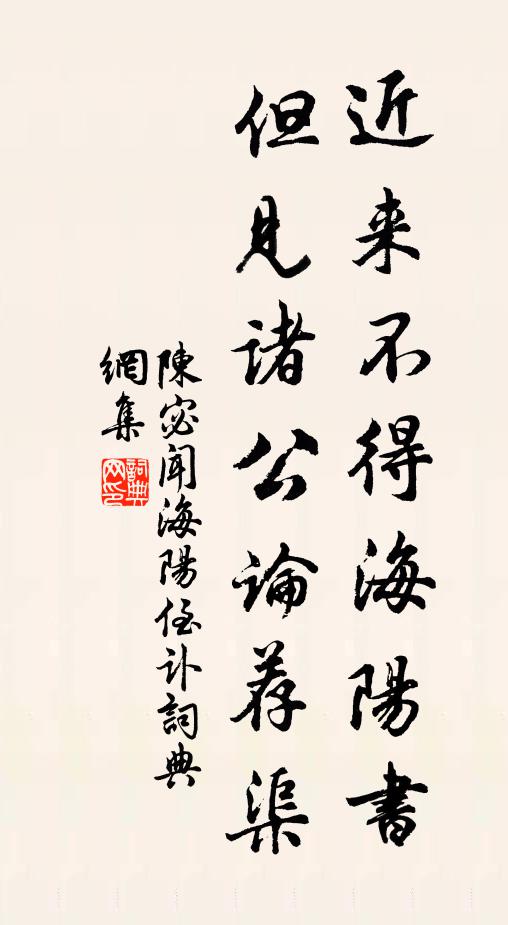 近来不得海陽書
但見諸公論荐渠
陳宓聞海陽侄訃詞典
網集
詞典
網印